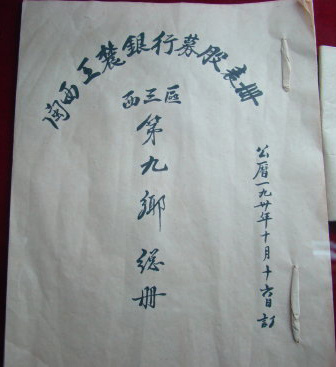 闽西工農銀行募股表冊
西三區
第九鄉總册
公曆一九卅年十月十六日訂